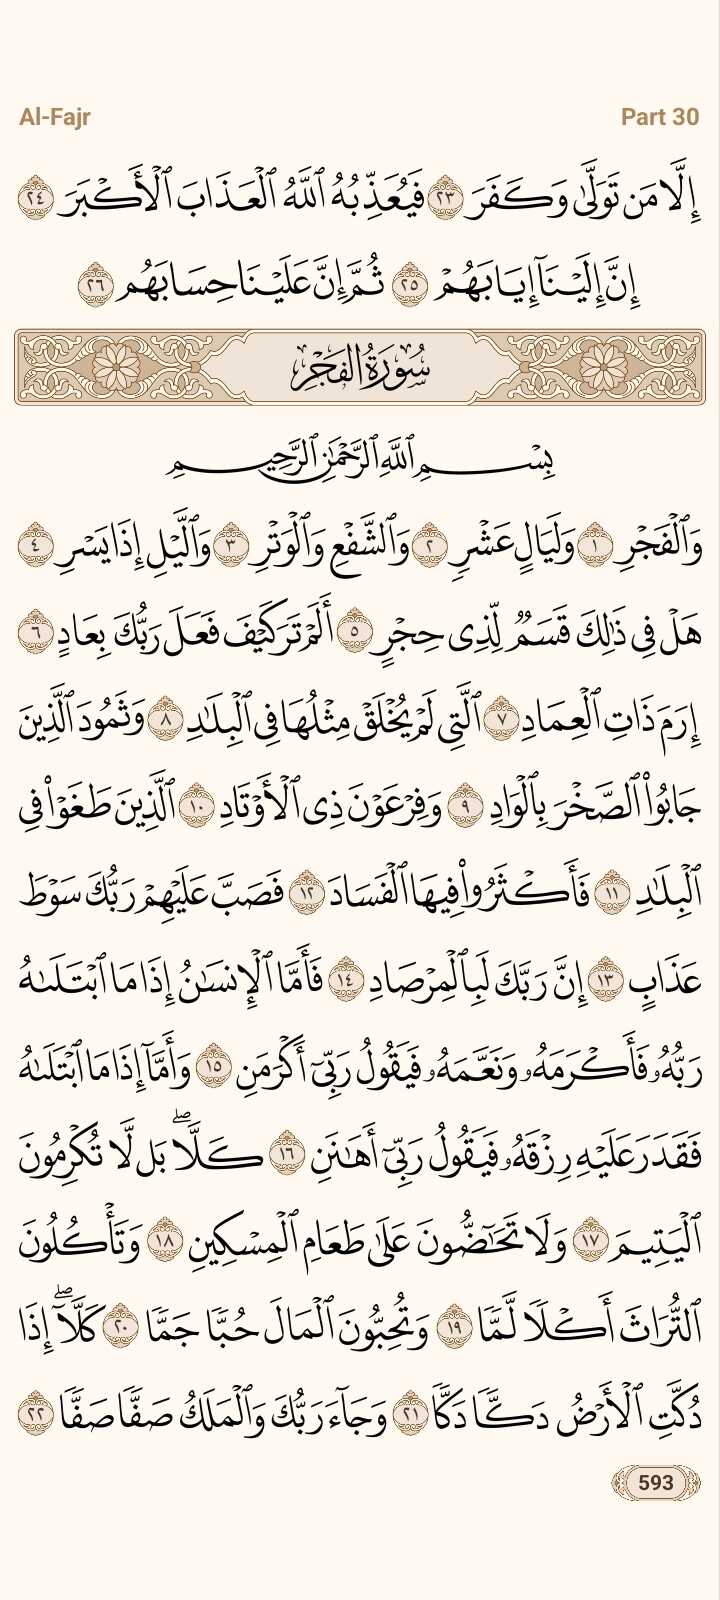 Al-Fajr Part 30
إِلَّا مَن تَوَلَّىٰ وَكَفَرَ ٢٣ فَيُعَذِّبُهُ ٱللَّهُ ٱلْعَذَابَ ٱلْأَكْبَرَ ٢٤
إِنَّ إِلَيْنَآ إِيَابَهُمْ ٢٥ ثُمَّ إِنَّ عَلَيْنَا حِسَابَهُم ٢٦
سُورَةُ الفَجْرِ
بِسْمِ ٱللَّهِ ٱلرَّحْمَٰنِ ٱلرَّحِيمِ
وَٱلْفَجْرِ ١ وَلَيَالٍ عَشْرٍ ٢ وَٱلشَّفْعِ وَٱلْوَتْرِ ٣ وَٱلَّيْلِ إِذَا يَسْرِ ٤
هَلْ فِى ذَٰلِكَ قَسَمٌ لِّذِى حِجْرٍ ٥ أَلَمْ تَرَ كَيْفَ فَعَلَ رَبُّكَ بِعَادٍ ٦
إِرَمَ ذَاتِ ٱلْعِمَادِ ٧ ٱلَّتِى لَمْ يُخْلَقْ مِثْلُهَا فِى ٱلْبِلَٰدِ ٨ وَثَمُودَ ٱلَّذِينَ
جَابُوا۟ ٱلصَّخْرَ بِٱلْوَادِ ٩ وَفِرْعَوْنَ ذِى ٱلْأَوْتَادِ ١٠ ٱلَّذِينَ طَغَوْا۟ فِى
ٱلْبِلَٰدِ ١١ فَأَكْثَرُوا۟ فِيهَا ٱلْفَسَادَ ١٢ فَصَبَّ عَلَيْهِمْ رَبُّكَ سَوْطَ
عَذَابٍ ١٣ إِنَّ رَبَّكَ لَبِٱلْمِرْصَادِ ١٤ فَأَمَّا ٱلْإِنسَٰنُ إِذَا مَا ٱبْتَلَىٰهُ
رَبُّهُۥ فَأَكْرَمَهُۥ وَنَعَّمَهُۥ فَيَقُولُ رَبِّىٓ أَكْرَمَنِ ١٥ وَأَمَّآ إِذَا مَا ٱبْتَلَىٰهُ
فَقَدَرَ عَلَيْهِ رِزْقَهُۥ فَيَقُولُ رَبِّىٓ أَهَٰنَنِ ١٦ كَلَّا ۖ بَل لَّا تُكْرِمُونَ
ٱلْيَتِيمَ ١٧ وَلَا تَحَٰٓضُّونَ عَلَىٰ طَعَامِ ٱلْمِسْكِينِ ١٨ وَتَأْكُلُونَ
ٱلتُّرَاثَ أَكْلًا لَّمًّا ١٩ وَتُحِبُّونَ ٱلْمَالَ حُبًّا جَمًّا ٢٠ كَلَّآ ۖ إِذَا
دُكَّتِ ٱلْأَرْضُ دَكًّا دَكًّا ٢١ وَجَآءَ رَبُّكَ وَٱلْمَلَكُ صَفًّا صَفًّا ٢٢
593